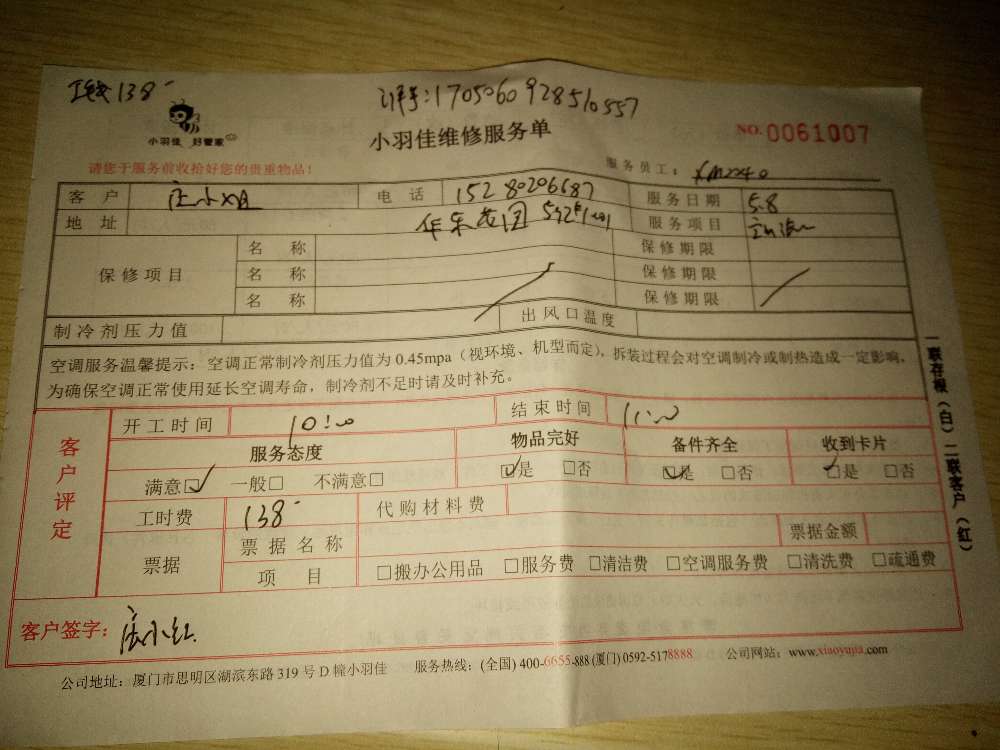 138-
订单号:1705060928510557
小羽佳 好管家
小羽佳维修服务单
NO. 0061007
请您于服务前收拾好您的贵重物品!
服务员工:
客户 庄小姐 电话 15280206687 服务日期 5.8
地址 服务项目
保修项目 名称 保修期限
名称 保修期限
名称 保修期限
制冷剂压力值 出风口温度
空调服务温馨提示:空调正常制冷剂压力值为0.45mpa(视环境、机型而定),拆装过程会对空调制冷或制热造成一定影响,
为确保空调正常使用延长空调寿命,制冷剂不足时请及时补充。
一联存根(白)二联客户(红)
客户评定
开工时间 10:00 结束时间 11:00
服务态度 物品完好 备件齐全 收到卡片
满意☑ 一般□ 不满意□ ☑是 □否 ☑是 □否 ☑是 □否
工时费 138- 代购材料费
票据 票据名称 票据金额
项目 □搬办公用品 □服务费 □清洁费 □空调服务费 □清洗费 □疏通费
客户签字:庄小红
公司地址:厦门市思明区湖滨东路319号D幢小羽佳 服务热线:(全国)400-6655-888(厦门)0592-5178888 公司网站:www.xiaoyujia.com